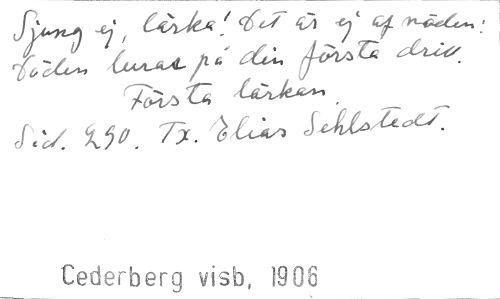 Sjung ej, lärka! Det är ej af nöden:
Döden lurar på din första drill.
Första lärkan.
Sid. 290. Tx. Elias Sehlstedt.
Cederberg visb, 1906